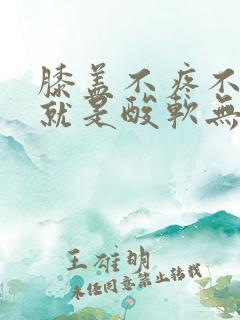 膝盖不疼不
就是酸軟無
王雄明
未经同意禁止转载